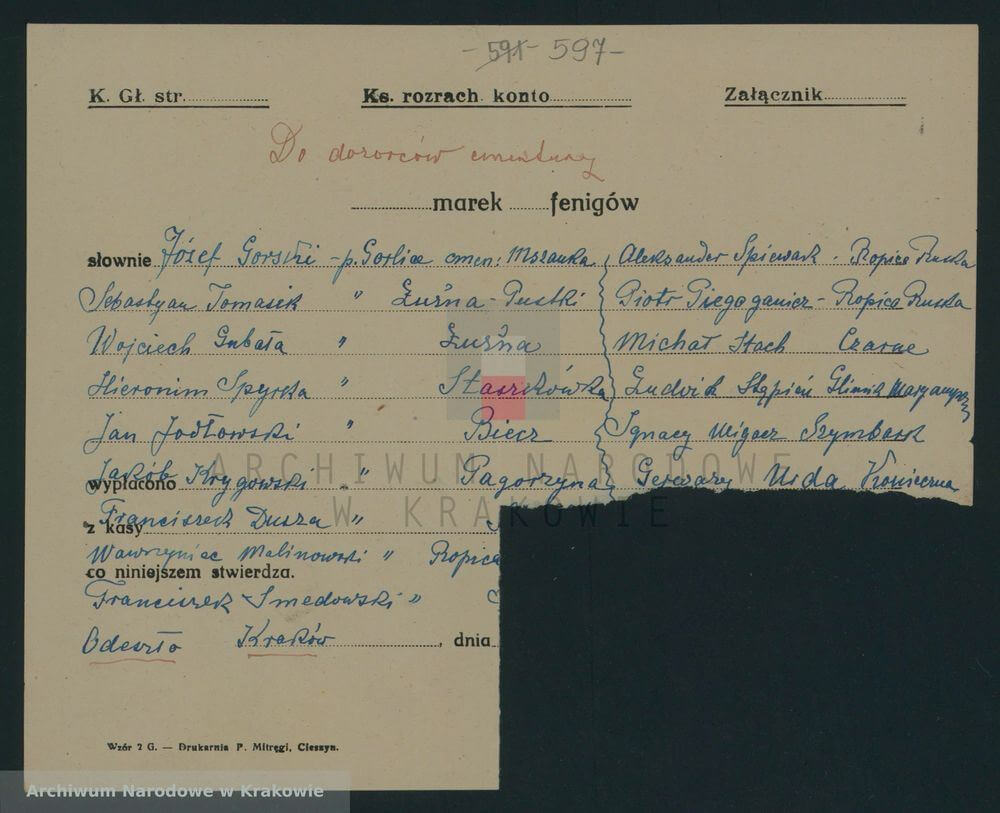 - 591 - 597 -
K. Gł. str. Ks. rozrach. konto Załącznik
Do dozorców cmentarzy
marek fenigów
słownie Józef Gorski - p. Gorlice cmen: Mszanka Aleksander Spiewak - Ropica Ruska
Sebastyan Tomasik " Łużna - Pustki Piotr - Ropica Ruska
Wojciech Gubała " Łużna Michał Stach Czarne
Hieronim Spyrka " Staszkówka Ludwik Stępień Glinik Maryampol
Jan Jodłowski " Biecz Ignacy Migacz Szymbark
wypłacono Jakób Krygowski " Pagorzyna Gerwazy Konieczna
z kasy Franciszek Dusza "
Wawrzyniec Malinowski " Ropica
co niniejszem stwierdza.
Franciszek Smedowski "
Odeszło Kraków, dnia
Wzór 2 G. — Drukarnia P. Mitręgi, Cieszyn.
ARCHIWUM NARODOWE
W KRAKOWIE
Archiwum Narodowe w Krakowie